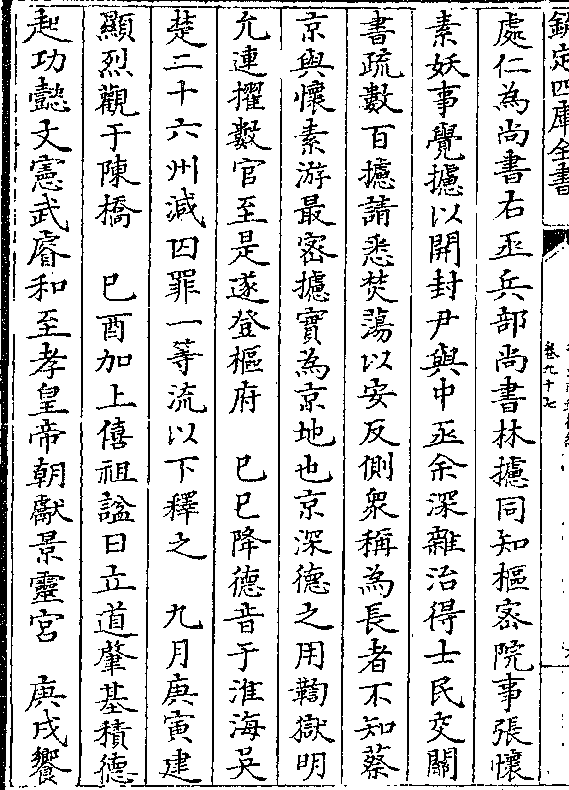 欽定四庫全書
卷九十七
處仁為尚書右丞兵部尚書林攄同知樞密院事張懐
素妖事覺攄以開封尹與中丞余深雜治得士民交關
書疏數百攄請悉焚蕩以安反側衆稱為長者不知蔡
京與懷素游最密攄實為京地也京深德之用鞫獄明
允連擢數官至是遂登樞府　己巳降德音于淮海吳
楚二十六州減囚罪一等流以下釋之　九月庚寅建
顯烈觀于陳橋　己酉加上僖祖諡曰立道肇基積德
起功懿文憲武睿和至孝皇帝朝獻景靈宮　庚戌饗